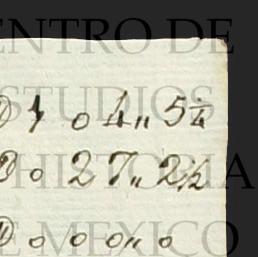 ENTRO DE
ESTUDIOS
HISTORIA
E MEXICO
1 0 4,, 5 1/4
3 0 2 7,, 2 1/2
0 0 0,, 0